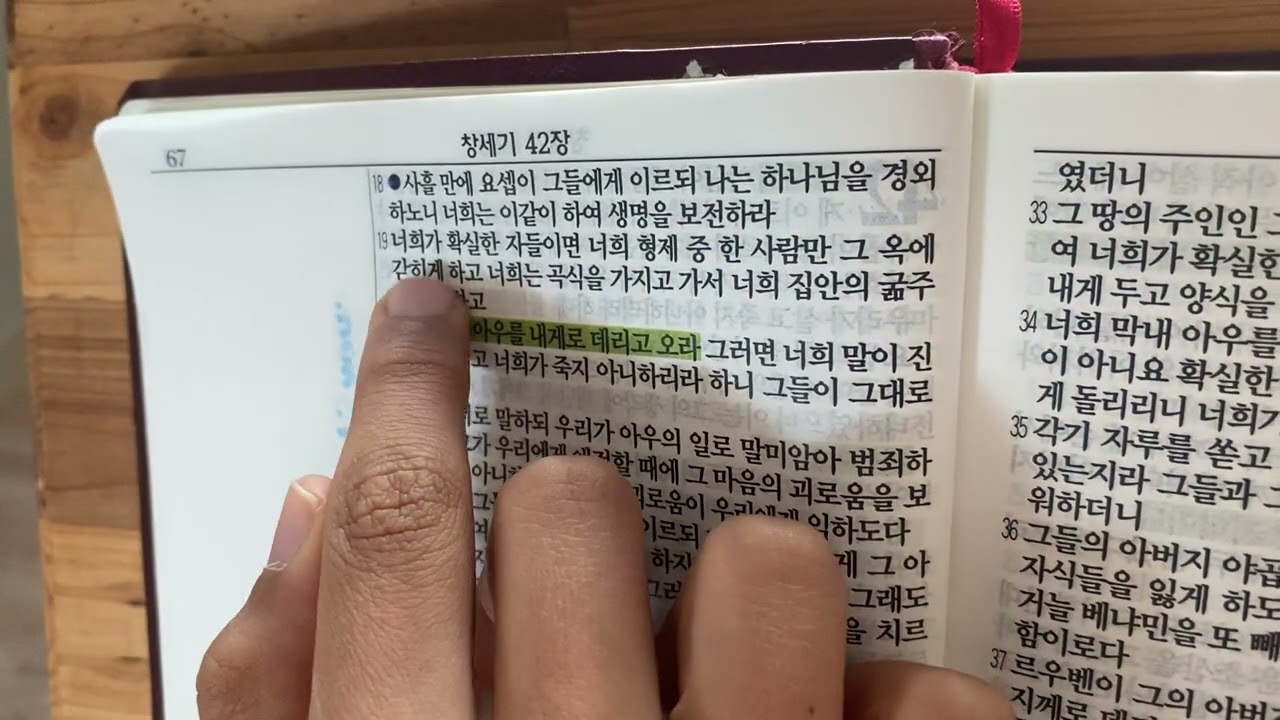 67
창세기 42장
18 ●사흘 만에 요셉이 그들에게 이르되 나는 하나님을 경외
하노니 너희는 이같이 하여 생명을 보전하라
19 너희가 확실한 자들이면 너희 형제 중 한 사람만 그 옥에
갇히게 하고 너희는 곡식을 가지고 가서 너희 집안의 굶주
하고
아우를 내게로 데리고 오라 그러면 너희 말이 진
고 너희가 죽지 아니하리라 하니 그들이 그대로
말하되 우리가 아우의 일로 말미암아 범죄하
우리에게 애걸할 때에 그 마음의 괴로움을 보
괴로움이 우리에게 임하도다
이르되
하지 그 아
그래도
을 치르
였더니
33 그 땅의 주인인
여 너희가 확실한
내게 두고 양식을
34 너희 막내 아우를
이 아니요 확실한
게 돌리리니 너희가
35 각기 자루를 쏟고
있는지라 그들과
워하더니
36 그들의 아버지 야곱
자식들을 잃게 하도
거늘 베냐민을 또 빼
함이로다
37 르우벤이 그의 아버
지께로